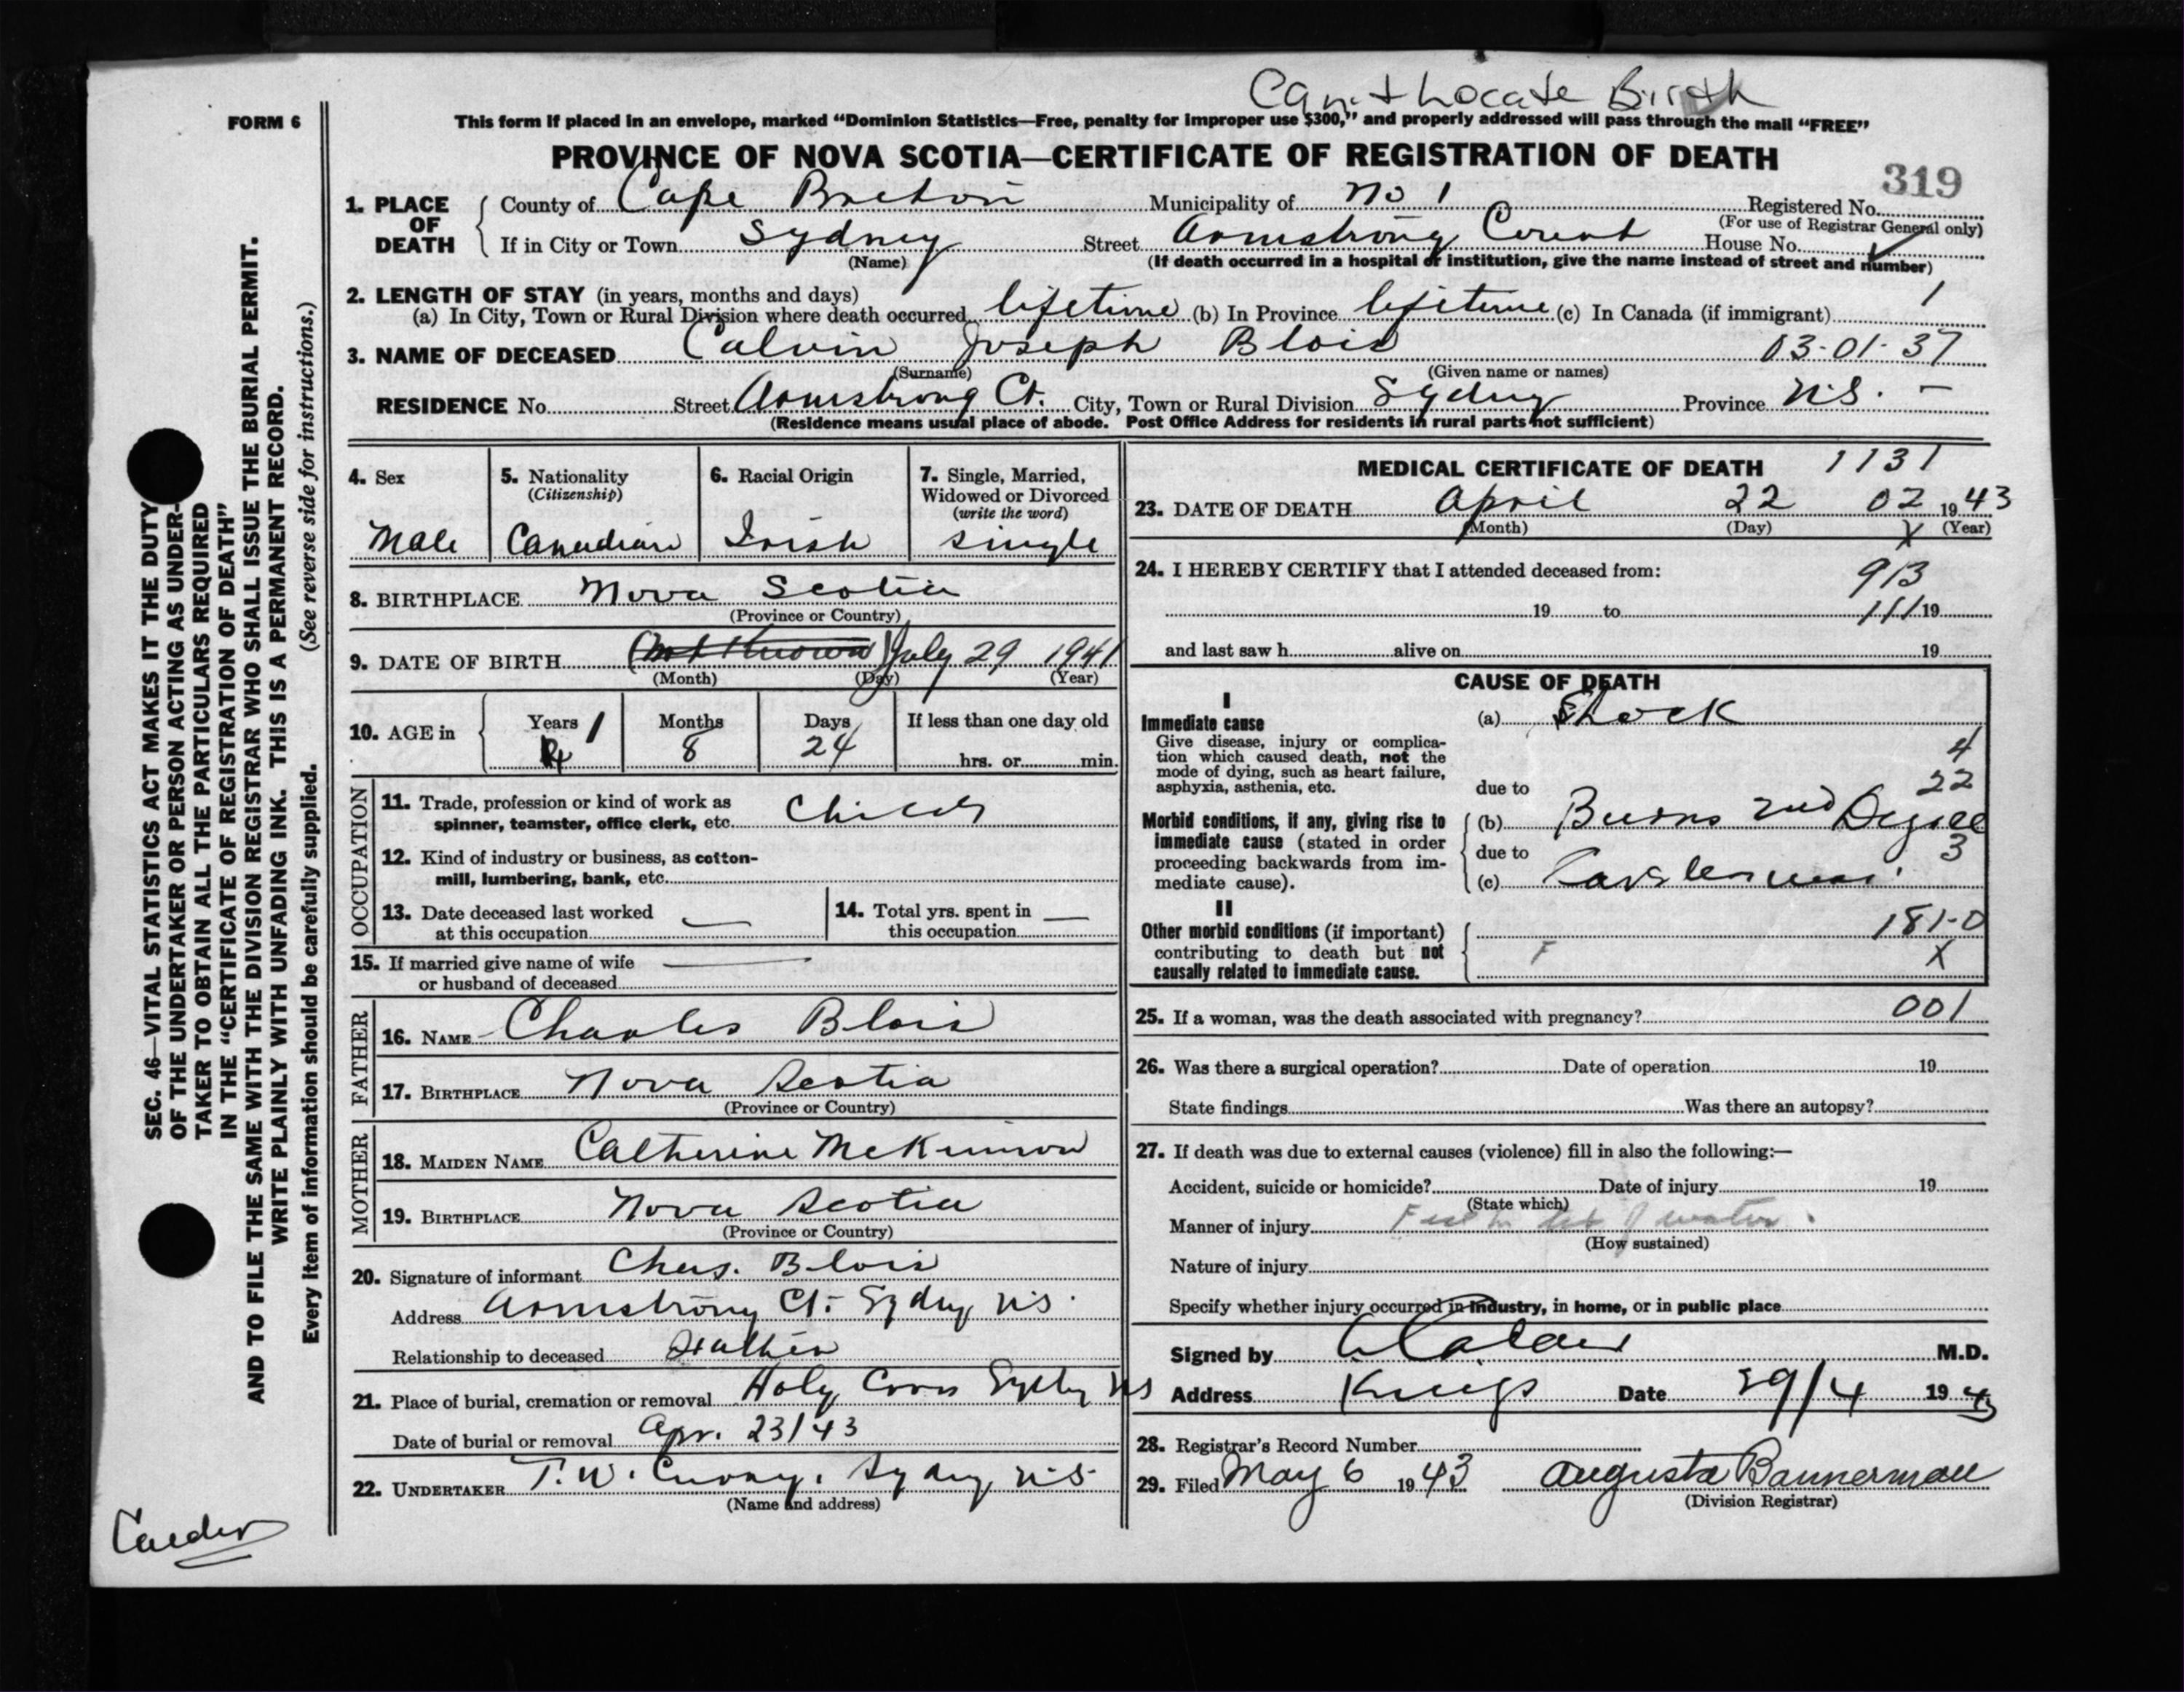 Can't Locate Birth
FORM 6
This form if placed in an envelope, marked "Dominion Statistics—Free, penalty for improper use $300," and properly addressed will pass through the mail "FREE"
PROVINCE OF NOVA SCOTIA—CERTIFICATE OF REGISTRATION OF DEATH
319
1. PLACE OF DEATH
County of Cape Breton Municipality of No 1 Registered No.
(For use of Registrar General only)
If in City or Town Sydney Street Armstrong Court House No.
(Name) (If death occurred in a hospital or institution, give the name instead of street and number)
2. LENGTH OF STAY (in years, months and days)
(a) In City, Town or Rural Division where death occurred lifetime (b) In Province lifetime (c) In Canada (if immigrant) 1
3. NAME OF DECEASED Calvin Joseph Blois 03-01-37
(Surname) (Given name or names)
RESIDENCE No. Street Armstrong Ct. City, Town or Rural Division Sydney Province N.S. -
(Residence means usual place of abode. Post Office Address for residents in rural parts not sufficient)
4. Sex Male
5. Nationality (Citizenship) Canadian
6. Racial Origin Irish
7. Single, Married, Widowed or Divorced (write the word) single
8. BIRTHPLACE Nova Scotia
(Province or Country)
9. DATE OF BIRTH (Not Known) July 29 1941
(Month) (Day) (Year)
10. AGE in Years 1 Months 8 Days 24 If less than one day old
hrs. or min.
OCCUPATION
11. Trade, profession or kind of work as spinner, teamster, office clerk, etc. Child
12. Kind of industry or business, as cotton-mill, lumbering, bank, etc.
13. Date deceased last worked at this occupation —
14. Total yrs. spent in this occupation —
15. If married give name of wife or husband of deceased —
FATHER
16. NAME Charles Blois
17. BIRTHPLACE Nova Scotia
(Province or Country)
MOTHER
18. MAIDEN NAME Catherine McKinnon
19. BIRTHPLACE Nova Scotia
(Province or Country)
20. Signature of informant Chas. Blois
Address Armstrong Ct. Sydney N.S.
Relationship to deceased Father
21. Place of burial, cremation or removal Holy Cross Sydney NS
Date of burial or removal Apr. 23/43
22. UNDERTAKER T. W. Curry, Sydney N.S.
(Name and address)
MEDICAL CERTIFICATE OF DEATH 1131
23. DATE OF DEATH April 22 02 1943
(Month) (Day) X (Year)
24. I HEREBY CERTIFY that I attended deceased from:
913
19 to 111 19
and last saw h alive on 19
CAUSE OF DEATH
I
Immediate cause (a) Shock
Give disease, injury or complication which caused death, not the mode of dying, such as heart failure, asphyxia, asthenia, etc.
4
22
due to
Morbid conditions, if any, giving rise to immediate cause (stated in order proceeding backwards from immediate cause).
(b) Burns 2nd Degree
due to 3
(c)
II
Other morbid conditions (if important) contributing to death but not causally related to immediate cause.
181-0
F X
25. If a woman, was the death associated with pregnancy? 001
26. Was there a surgical operation? Date of operation 19
State findings Was there an autopsy?
27. If death was due to external causes (violence) fill in also the following:—
Accident, suicide or homicide? Date of injury 19
(State which)
Manner of injury of water.
(How sustained)
Nature of injury
Specify whether injury occurred in industry, in home, or in public place
Signed by Calder M.D.
Address Date 29/4 1943
28. Registrar's Record Number
29. Filed May 6 1943 Augusta Bannerman
(Division Registrar)
SEC. 46—VITAL STATISTICS ACT MAKES IT THE DUTY
OF THE UNDERTAKER OR PERSON ACTING AS UNDER-
TAKER TO OBTAIN ALL THE PARTICULARS REQUIRED
IN THE "CERTIFICATE OF REGISTRATION OF DEATH"
AND TO FILE THE SAME WITH THE DIVISION REGISTRAR WHO SHALL ISSUE THE BURIAL PERMIT.
WRITE PLAINLY WITH UNFADING INK. THIS IS A PERMANENT RECORD.
Every item of information should be carefully supplied. (See reverse side for instructions.)
Calder